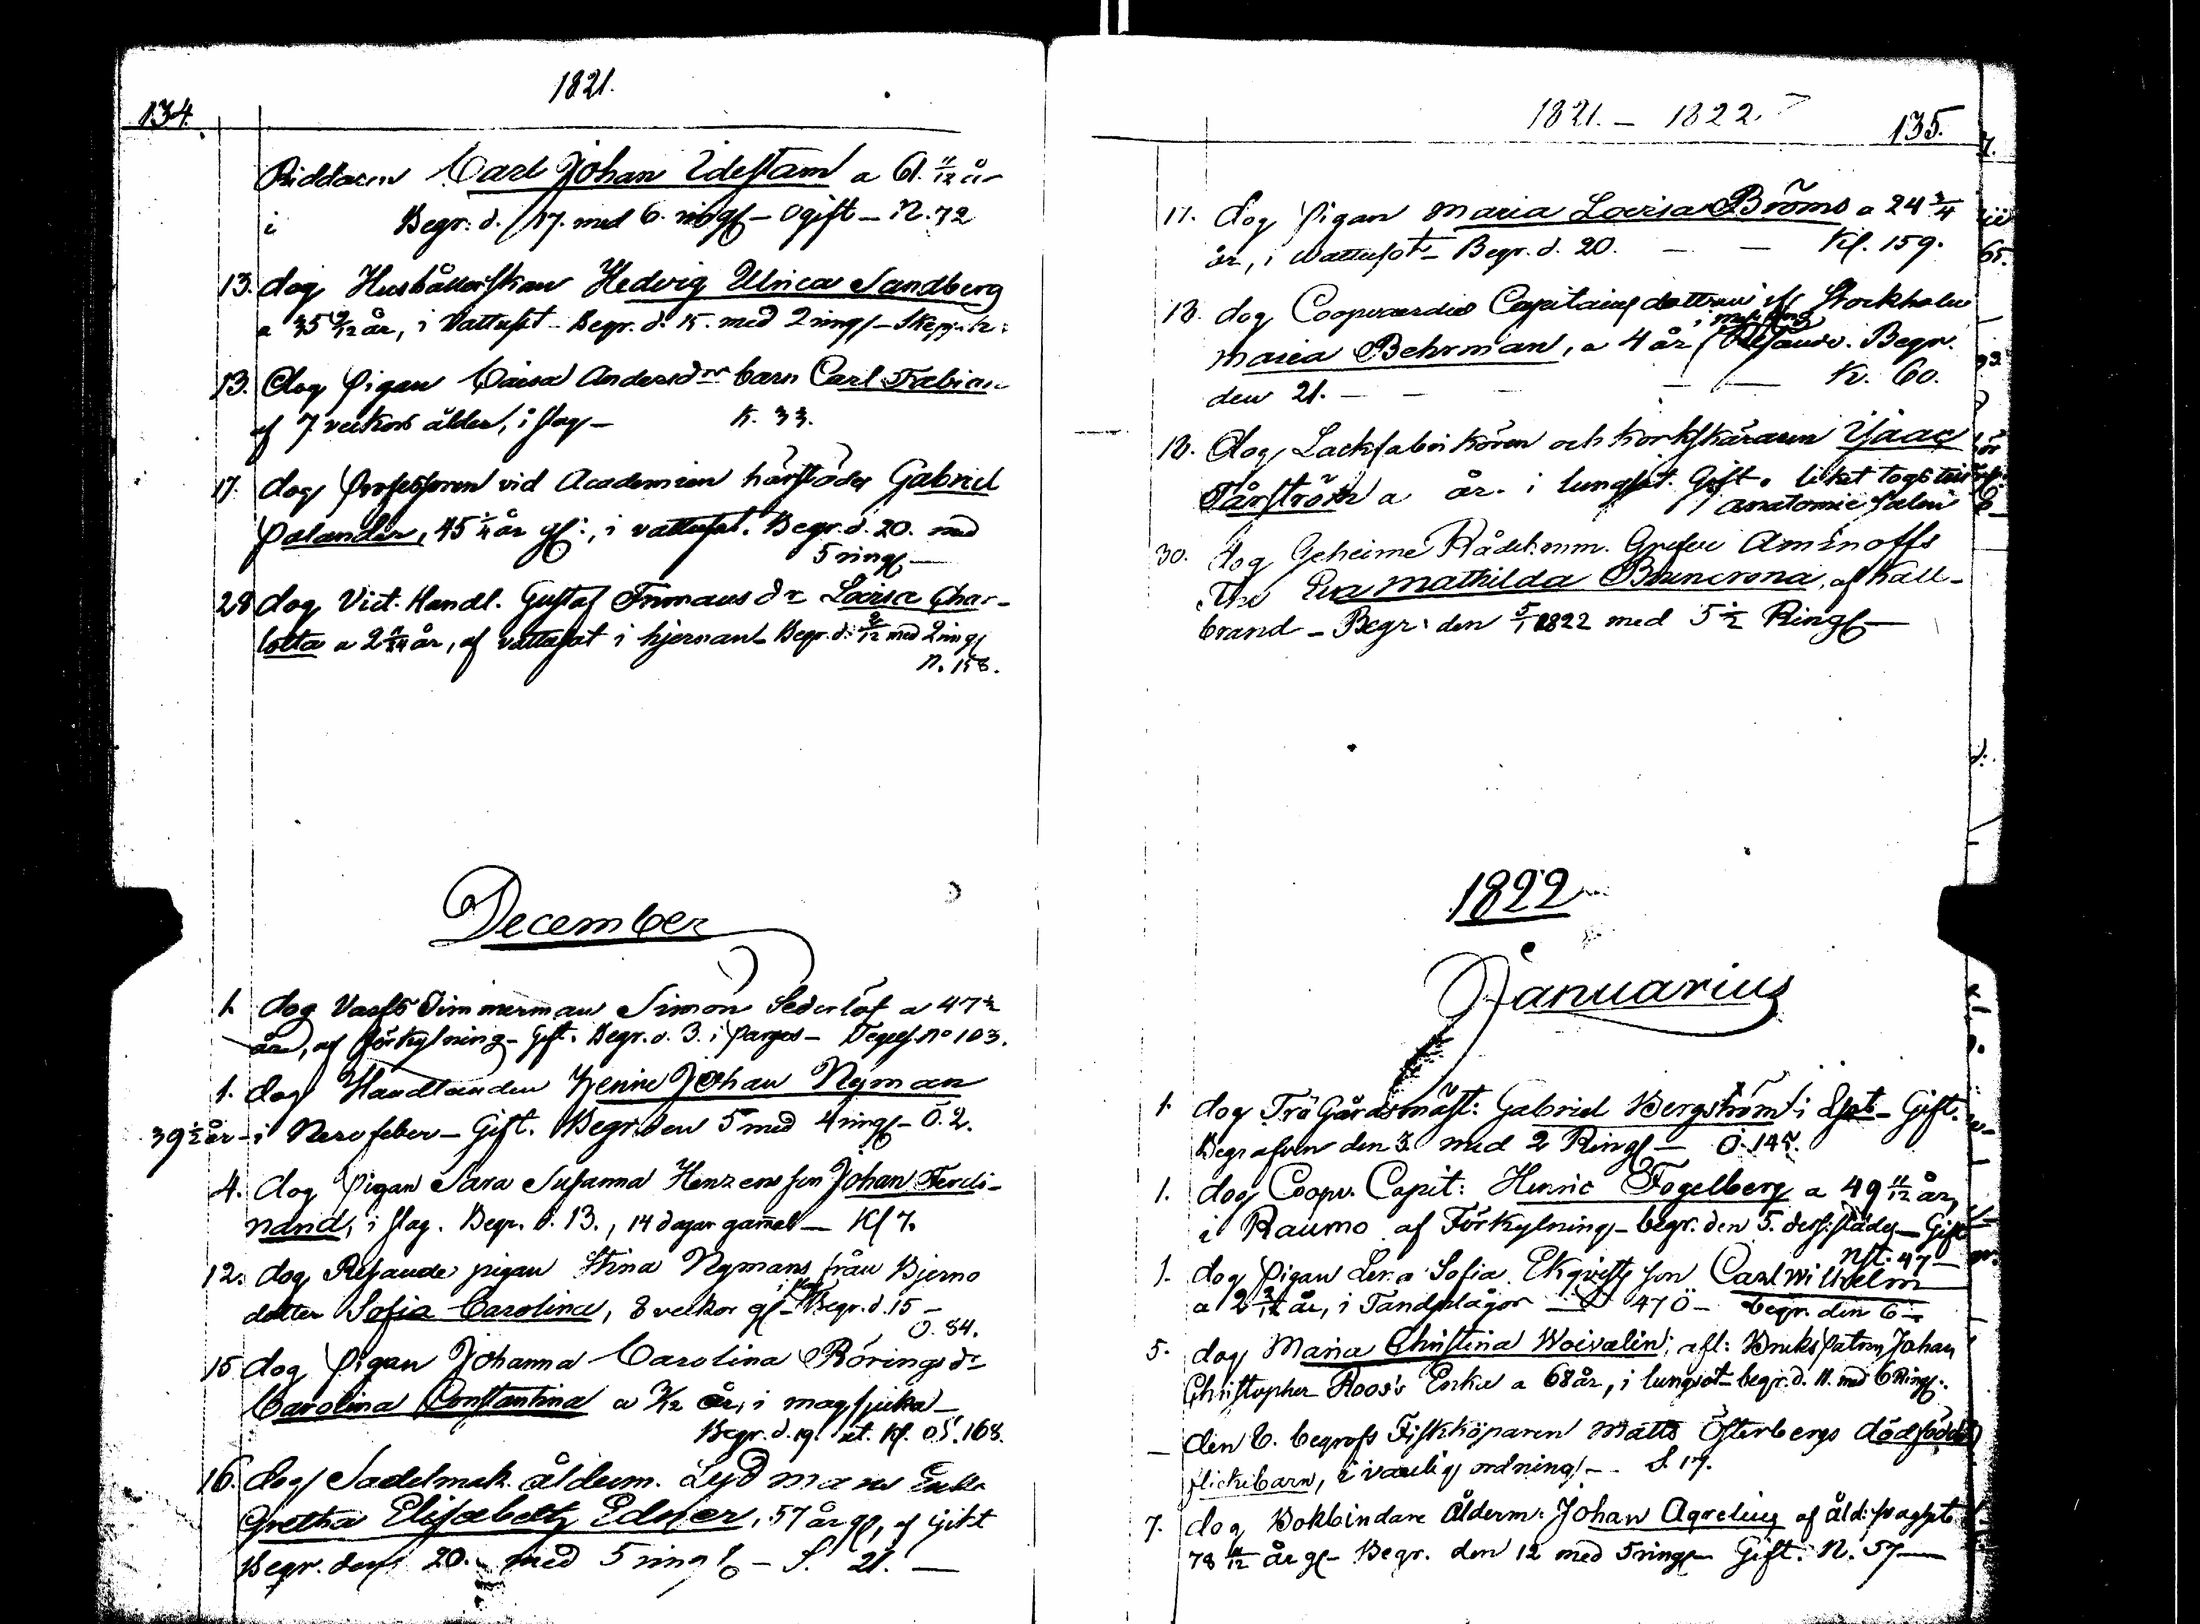 134.
1821.
Riddaren Carl Johan Idestam a 61 11/12 år
i Begr. d. 17. med 6. ringg - Ogift - N. 72
13. dog Hushållerskan Hedvig Ulrica Sandberg
a 35 9/12 år, i Vattusot - Begr. d. 15. med 2 ringg - Skepp. h:
13. dog Pigan Caisa Andersdr barn Carl Fabian
af 7 veckors ålder, i slag - K. 33.
17. dog Professoren vid Academien härstädes Gabriel
Palander, 45 1/4 år gl:, i vattusot. Begr. d. 20. med
5 ringg -
28 dog Vict. Handl. Gustaf Enmans dr Lovisa Char-
lotta a 2 11/24 år, af vattusot i hjernan - Begr. d. 2/12 med 2 ringg
N. 158.
December
1. dog Varfs Timmerman Simon Sederlöf a 47 1/2
år, af förkylning - Gift. Begr. d. 3. i Parges - Tegels. No 103.
1. dog Handlanden Henric Johan Nyman
39 1/2 år - i Nervfeber - Gift. Begr. den 5 med 4 ringg - Ö. 2.
4. dog Pigan Sara Susanna Henzens son Johan Ferdi-
nand, i slag. Begr. d. 13., 14 dagar gammal - Kl 7.
12. dog Resande pigan Stina Nymans från Bjerno
dotter Sofia Carolina, 8 veckor gl - slag Begr. d. 15 -
O. 84.
15 dog Pigan Johanna Carolina Rörings dr
Carolina Constantina a 3/12 år, i magsjuka -
Begr. d. 19. 168.
16. dog Sadelmak. ålderm. Lydman Enka
Gretha Elisabeth Edner, 57 år gl, af gikt
Begr. den 20. med 5 ringg - S. 21. -
1821. - 1822.
135.
17. dog Pigan Maria Lovisa Bröms a 24 3/4
år, i Wattusot - Begr. d. 20. - - Kl. 159.
18. dog Coopvaerdie Capitains dottren ifr Stockholm
Maria Behrman, a 4 år, i Resande. Begr.
den 21. - - - - Kr. 60.
18. dog Lackfabrikören och korkskäraren Isaac
Tårström a år. i lungsot. Gift. liket togs till
anatomie salen
30. dog Geheime Rådet. mm. Grefve Aminoffs
Fru Eva Mathilda Bruncrona, af kall-
brand - Begr: den 5/1 1822 med 5 1/2 Ringg -
1822
Januarius
1. dog Trägårdsmäst: Gabriel Bergström i Gift.
Begrafven den 3. med 2 Ringg - Ö. 145.
1. dog Coopv. Capit: Henric Fogelberg a 49 11/12 år,
i Raumo af Förkylning - begr. den 5. derstädes - Gift
Nst: 47 -
1. dog Pigan Lena Sofia Ekqvists son Carl Wilhelm
a 2 2/12 år, i Tandplågor - 47 Ö - begr. den 6 -
5. dog Maria Christina Woivalin, afl: Bruks Patron Johan
Christopher Roos's Enka a 68 år, i lungsot - begr. d. 11. med 6 Ringg:
- den 6. begrofs Fiskköparen Matts Österbergs dödfödda
flickebarn, i vanlig ordning - S. 17.
7. dog Bokbindare Ålderm: Johan Agrelius af ålder
78 11/12 år gl - Begr. den 12 med 5 ringg - Gift. N. 57 -